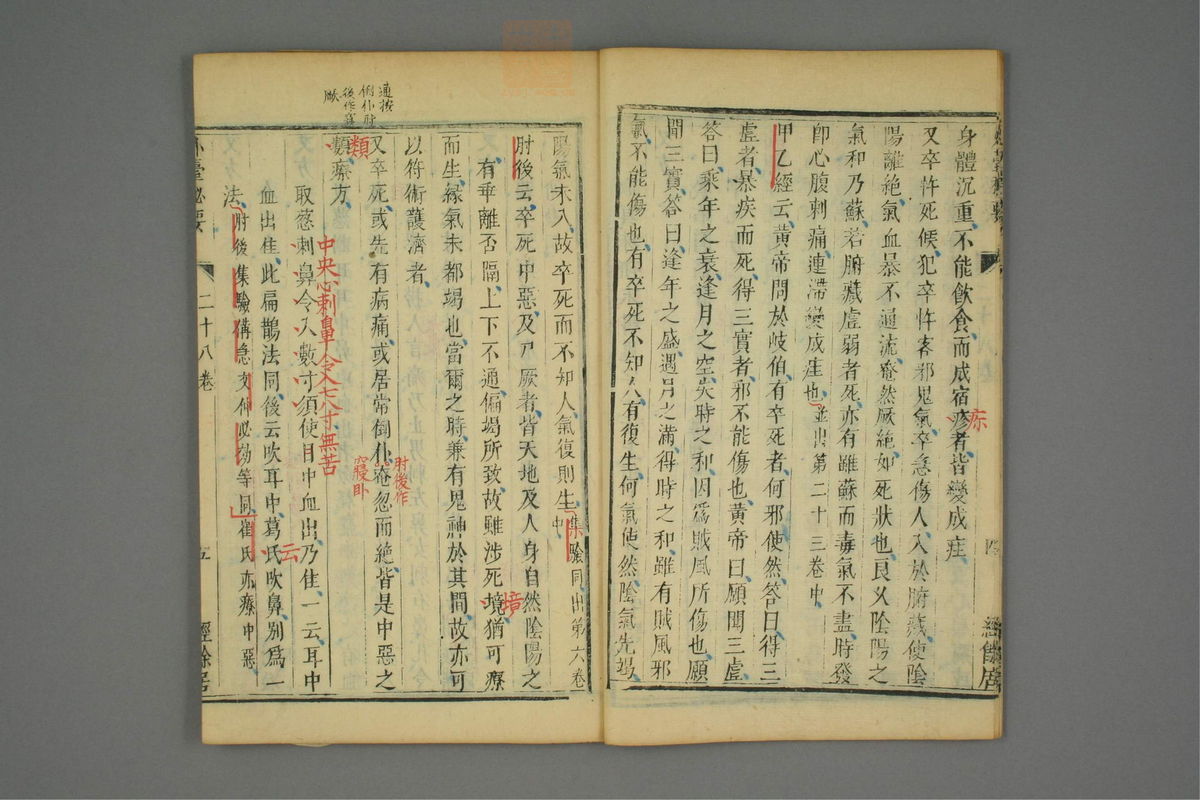 身體沉重不能飲食而成宿疹者皆變成疰
疹
又卒忤死候犯卒忤客邪鬼氣卒急傷人入於腑藏使陰
陽離絶氣血暴不通流奄然厥絶如死狀也良久陰陽之
氣和乃蘇若腑藏虛弱者死亦有雖蘇而毒氣不盡時發
卽心腹刺痛連滯變成疰也並出第二十三卷中
甲乙經云黃帝問於岐伯有卒死者何邪使然答曰得三
虛者暴疾而死得三實者邪不能傷也黃帝曰願聞三虛
答曰乘年之衰逢月之空失時之和因爲賊風所傷也願
聞三實答曰逢年之盛遇月之滿得時之和雖有賊風邪
氣不能傷也有卒死不知人有復生何氣使然陰氣先竭
陽氣未入故卒死而不知人氣復則生集驗同出第六卷
中
肘後云卒死中惡及尸厥者皆天地及人身自然陰陽之
氣有乖離否隔上下不通偏竭所致故雖涉死境猶可療
境
而生緣氣未都竭也當爾之時兼有鬼神於其間故亦可
以符術護濟者
又卒死或先有病痛或居常倒仆奄忽而絶皆是中惡之
肘後作
寢臥
連按
倒仆肘
後作寢
類療方
類
取葱刺鼻令入數寸須使目中血出乃佳一云耳中
中央心刺鼻令入七八寸無苦
血出佳此扁鵲法同後云吹耳中葛氏吹鼻別爲一
云
法肘後集驗備急文仲必効等同崔氏亦療中惡
外臺秘要
二十八卷
五
經餘居